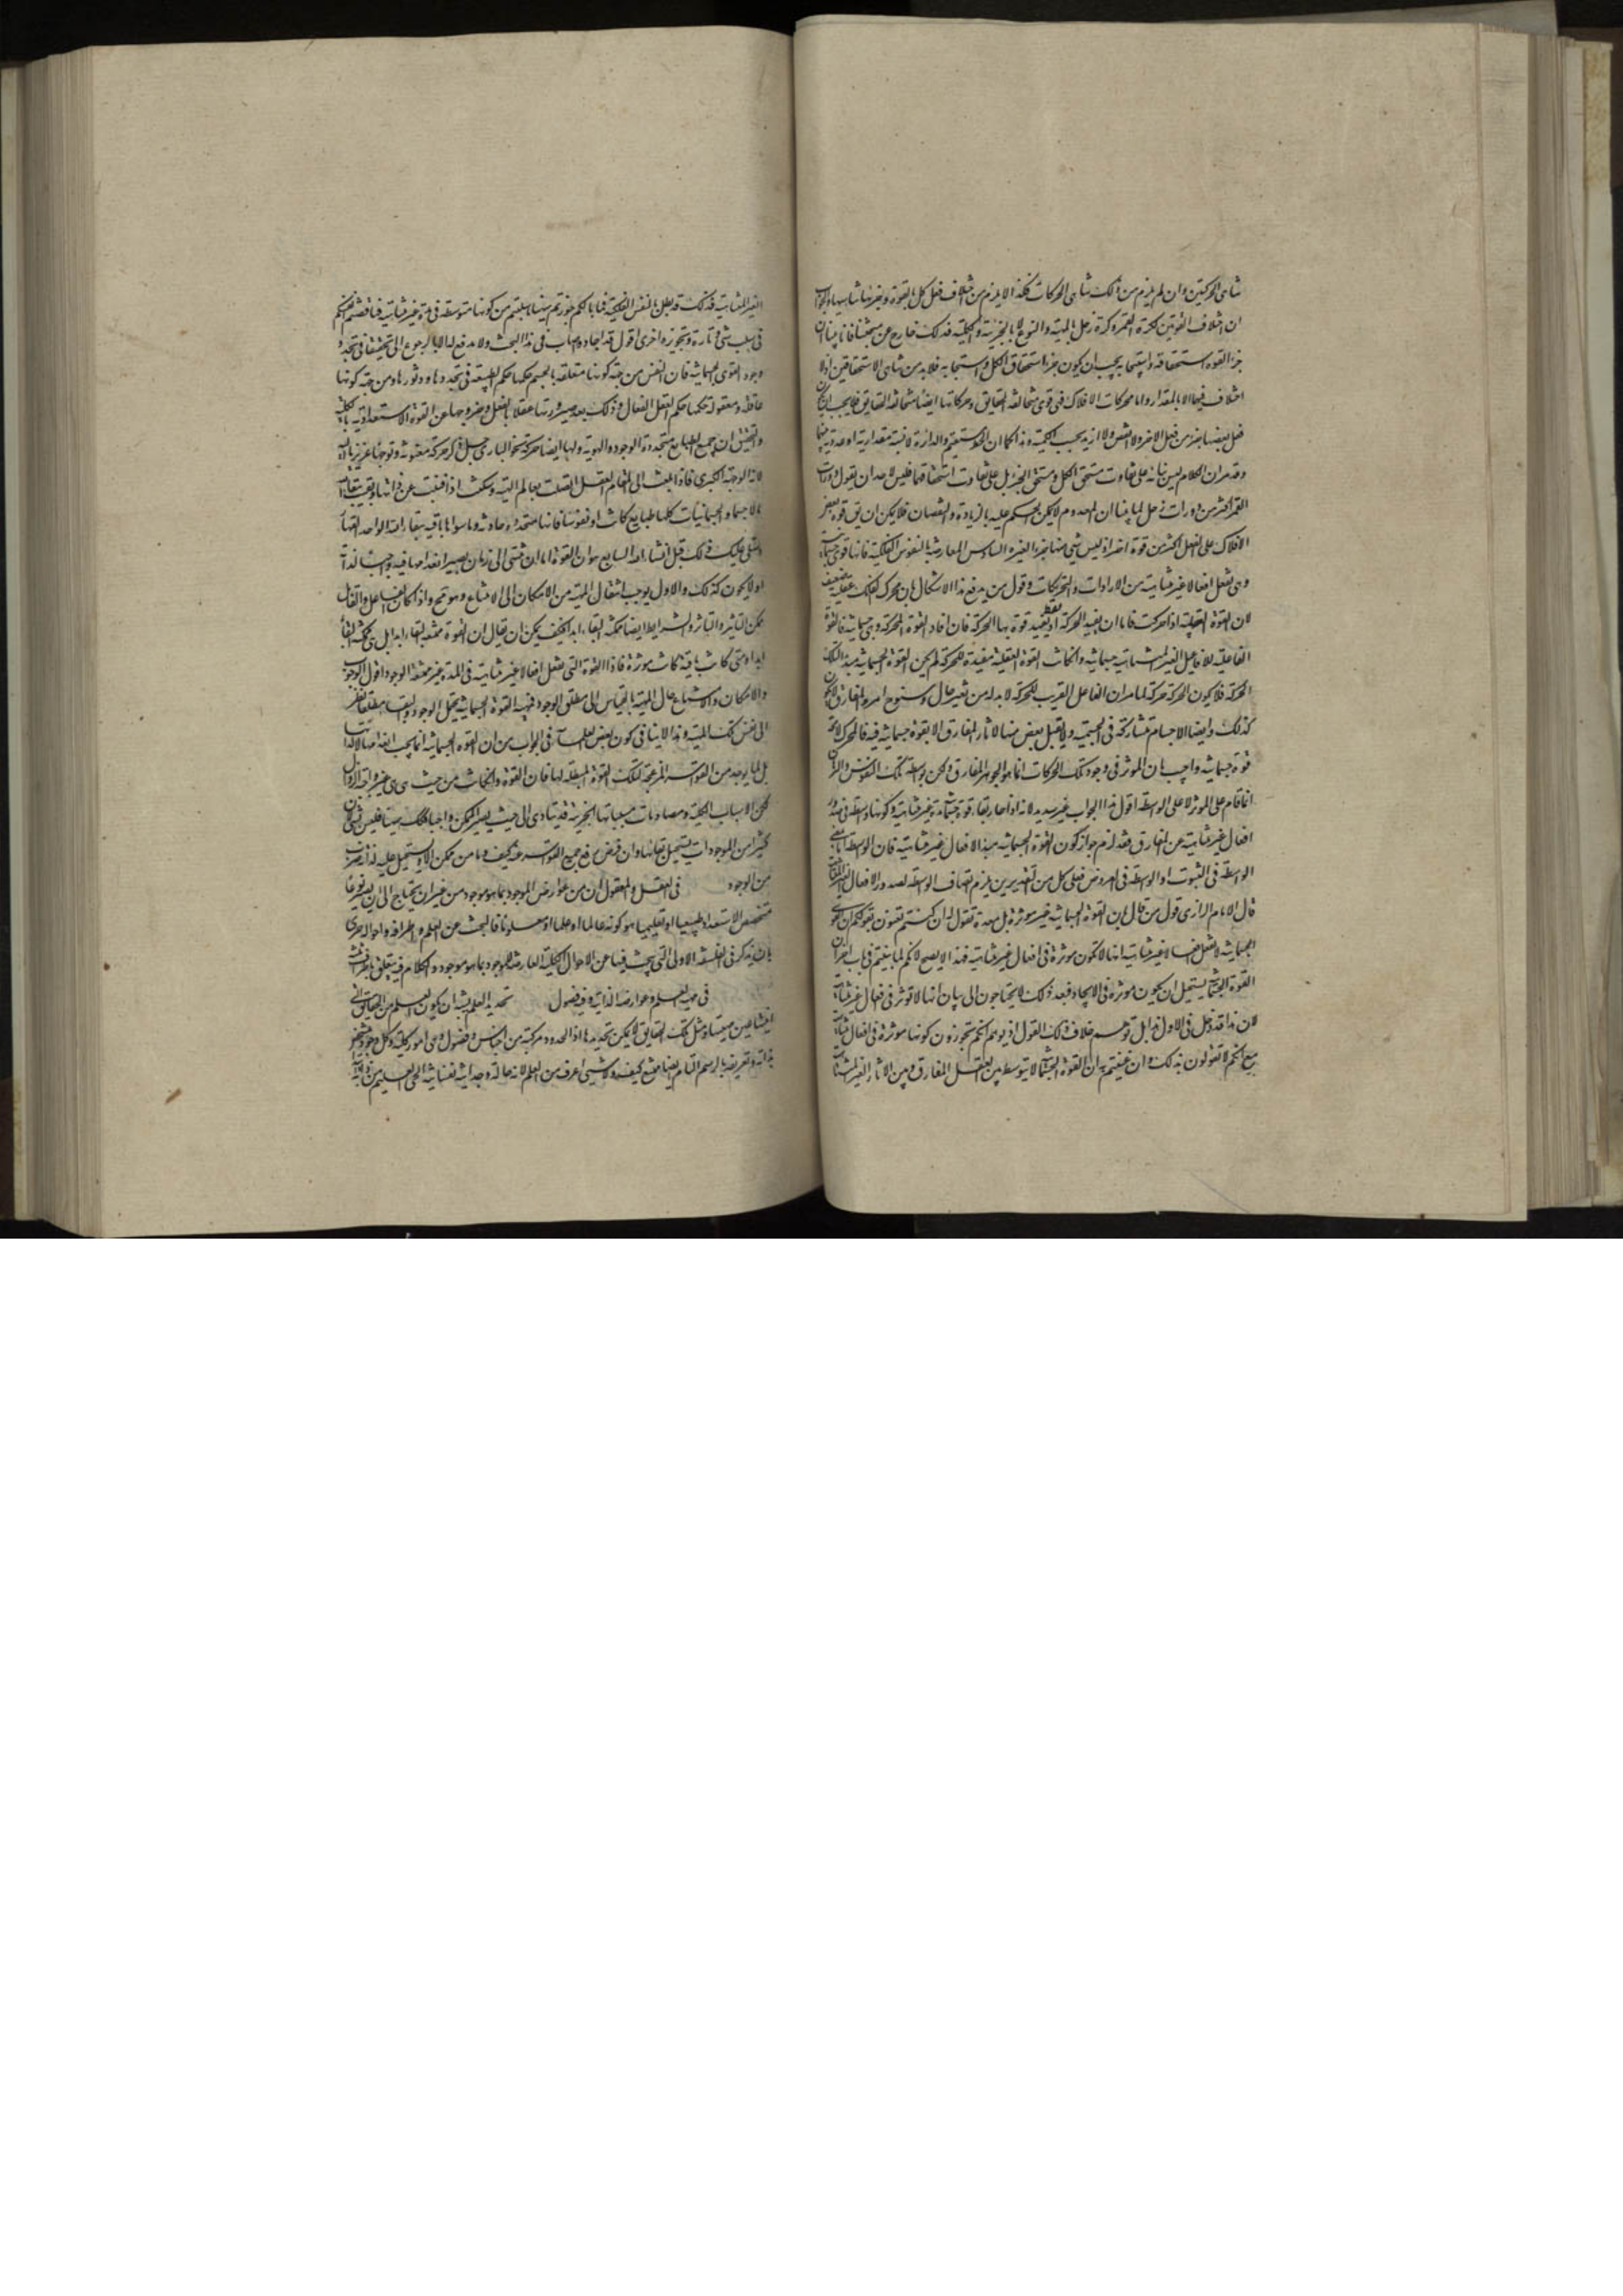 تناهى الحركتين وان لم يلزم من ذلك تناهى الحركات فكذا لا يلزم من اختلاف فعل كل القوة وجزئها تناهيها والجواب
ان اختلاف القوتين ككرة القمر وكرة زحل بالمهية والنوع لا بالجزئية والكلية فذلك خارج عن مبحثنا فانا بينا ان
جزء القوة استحقاقه واستيجابه يجب ان يكون جزء استحقاق الكل واستيجابه فلا بد من تناهى الاستحقاقين اذ لا
اختلاف فيها الا بالمقدار واما محركات الافلاك فهى قوى متخالفة الحقايق وحركاتها ايضا متخالفة الحقايق فلا يجب ان يكون
فعل بعضها جزء من فعل الاخر ولا انقص ولا ازيد بحسب الكمية وهذا كما ان الخط المستقيم والدائرة لا نسبة مقدارية او عددية بينهما
وقد مر ان الكلام ليس بنائه على تفاوت مستحق الكل ومستحق الجزء بل على تفاوت استحقاقهما فليس لاحد ان يقول دورات
القمر اكثر من دورات زحل لما بينا ان المعدوم لا يمكن الحكم عليه بالزيادة والنقصان فلا يمكن ان يق قوة بعض
الافلاك على الفعل اكثر من قوة اخر اذ ليس شى منها جزءا لغيره السادس المعارضة بالنفوس الفلكية فانها قوى جسمانية
وهى تفعل افعالا غير متناهية من الارادات والتحريكات وقول من يدفع هذا الاشكال بان محرك الفلك عقلية ضعيف
لان القوة العقلية اذا حركت فاما ان يفيد الحركة او يفيد قوة بها الحركة فان افاد القوة المحركة وهى جسمانية فالقوة
الفاعلة للافاعيل الغير المتناهية جسمانية وان كانت القوة العقلية مفيدة للحركة لم يكن القوة الجسمانية مبدء لتلك
الحركة فلا يكون الحركة حركة لما مر ان الفاعل القريب للحركة لا بد له من تغير حال وسنوح امر والمفارق لا يكون
كذلك وايضا الاجسام متشاركة فى الجسمية ولا يقبل بعض منها لاثار المفارق الا بقوة جسمانية فيه فالمحرك لا محالة
قوة جسمانية واجيب بان الموثر فى وجود تلك الحركات انما هو الجوهر المفارق ولكن بواسطة تلك النفوس والبرهان
انما قام على الموثر لا على الواسطة اقول هذا الجواب غير سديد لانه اذا جاز بقاء قوة جسمانية غير متناهية وكونها واسطة فى صدور
افعال غير متناهية عن المفارق فقد لزم جواز كون القوة الجسمانية مبدء لافعال غير متناهية فان الواسطة اما بمعنى
الواسطة فى الثبوت او الواسطة فى العروض فعلى كل من التقديرين يلزم اتصاف الواسطة لصدور الافعال الغير المتناهية
قال الامام الرازى قول من قال ان القوة الجسمانية غير موثرة بل معدة نقول له ان كنتم تعنون بقولكم ان القوى
الجسمانية لا تفعل افعالا غير متناهية انها لا تكون موثرة فى افعال غير متناهية فهذا لا يصح لانكم لما بينتم فى باب اخر ان
القوة الجسمانية يستحيل ان يكون موثرة فى الايجاد فبعد ذلك لا يحتاجون الى بيان انها لا توثر فى افعال غير متناهية
لان هذا قد دخل فى الاول هذا بل توهم خلاف ذلك القول اذ يوهم انكم تجوزون كونها موثرة فى افعال متناهية
مع انكم لا تقولون بذلك وان عنيتم به ان القوة الجسمانية لا يتوسط بين العقل المفارق وبين الاثار الغير المتناهية
الغير المتناهية فذلك قد بطل بالنفس الفلكية فما بالكم جوزتم هيهنا ما سلبتم من كونها متوسطة فى مدة غير متناهية فناقضتم انفسكم
فى سلب شى تارة وتجويزه اخرى اقول قد اجاد واصاب فى هذا البحث ولا مدفع له الا بالرجوع الى تحقيقنا فى تجدد
وجود القوى الجسمانية فان النفس من جهة كونها متعلقة بالجسم حكمها حكم الطبيعة فى تجددها ودثورها ومن جهة كونها
عاقلة ومعقولة حكمها حكم العقل الفعال وذلك بعد صيرورتها عقلا بالفعل وخروجها عن القوة الاستعدادية بالكلية
والتحقيق ان جميع الطبايع متجددة الوجود والهوية ولها ايضا حركة نحو البارى جل ذكره حركة معنوية وتوجها غريزيا اليه
لانه الوجهة الكبرى فاذا بلغت الى مقام العقل اتصلت بعالم الهية وسكنت اذا فنيت عن ذاتها وبقيت ببقاء الله
فالاجسام والجسمانيات كلها طبايع كانت او نفوسا فانها متجددة وحادثة وما سواها باقية ببقاء الله الواحد القهار
وستلى عليك ذلك قبل انشاء الله السابع هو ان القوة اما ان تنتهى الى زمان يصير انعدامها فيه واجبا لذاته
او لا يكون كذلك والاول يوجب انتقال المهية من الامكان الى الامتناع وهو قبيح واذا كان الفاعل والقابل
ممكن التاثير والتاثر والشرايط ايضا ممكنة البقاء ابدا فكيف يمكن ان يقال ان القوة ممتنعة البقاء ابدا بل هى ممكنة البقاء
ابدا ومتى كانت باقية كانت موثرة فاذا القوة التى تفعل افعالا غير متناهية فى المدة غير ممتنعة الوجود اقول الوجوب
والامكان والامتناع حال المهية بالقياس الى مطلق الوجود فمهية القوة الجسمانية يحتمل الوجود والبقاء مطلقا نظرا
الى نفس تلك المهية وهذا لا ينافى كون بعض العلماء فى الجواب من ان القوة الجسمانية انما يجب انعدامها لا لذاتها
بل لما يوجد من القواسر المزعجة لتلك القوة المبطلة لها فان القوة وان كانت من حيث هى هى غير واجبة الزوال
لكن الاسباب الكلية ومصادمات مسبباتها الجزئية قد يتادى الى حيث يصير الممكن واجبا فلك متنافيين فى
كثيرا من الموجودات يستحيل بقائها وان فرض رفع جميع القواسر عنه كيف وما من ممكن الا ويستحيل عليه لذاته ضرب
من الوجود فى العقل والمعقول ان من عوارض الموجود بما هو موجود من غير ان يحتاج الى ان يصير نوعا
متخصص الاستعداد طبيعيا او تعليميا هو كونه عالما او علما او معلوما فالبحث عن العلم واطرافه واحواله حرى
بان يذكر فى الفلسفة الاولى التى يبحث فيها عن الاحوال الكلية العارضة للموجود بما هو موجود والكلام فيه يتعلق باطراف ثلثة
فى مهية العلم وعوارضه الذاتية وفيه فصول تحديد العلم يشبه ان يكون العلم من الحقايق التى
انيتها عين مهيتها ومثل تلك الحقايق لا يمكن تحديدها اذ الحدود مركبة من اجناس وفصول وهى امور كلية وكل وجود متشخص
بذاته وتعريفه بالرسم التام ايضا ممتنع كيف ولا شى اعرف من العلم لانه حالة وجدانية نفسانية الحى العليم من ذاته